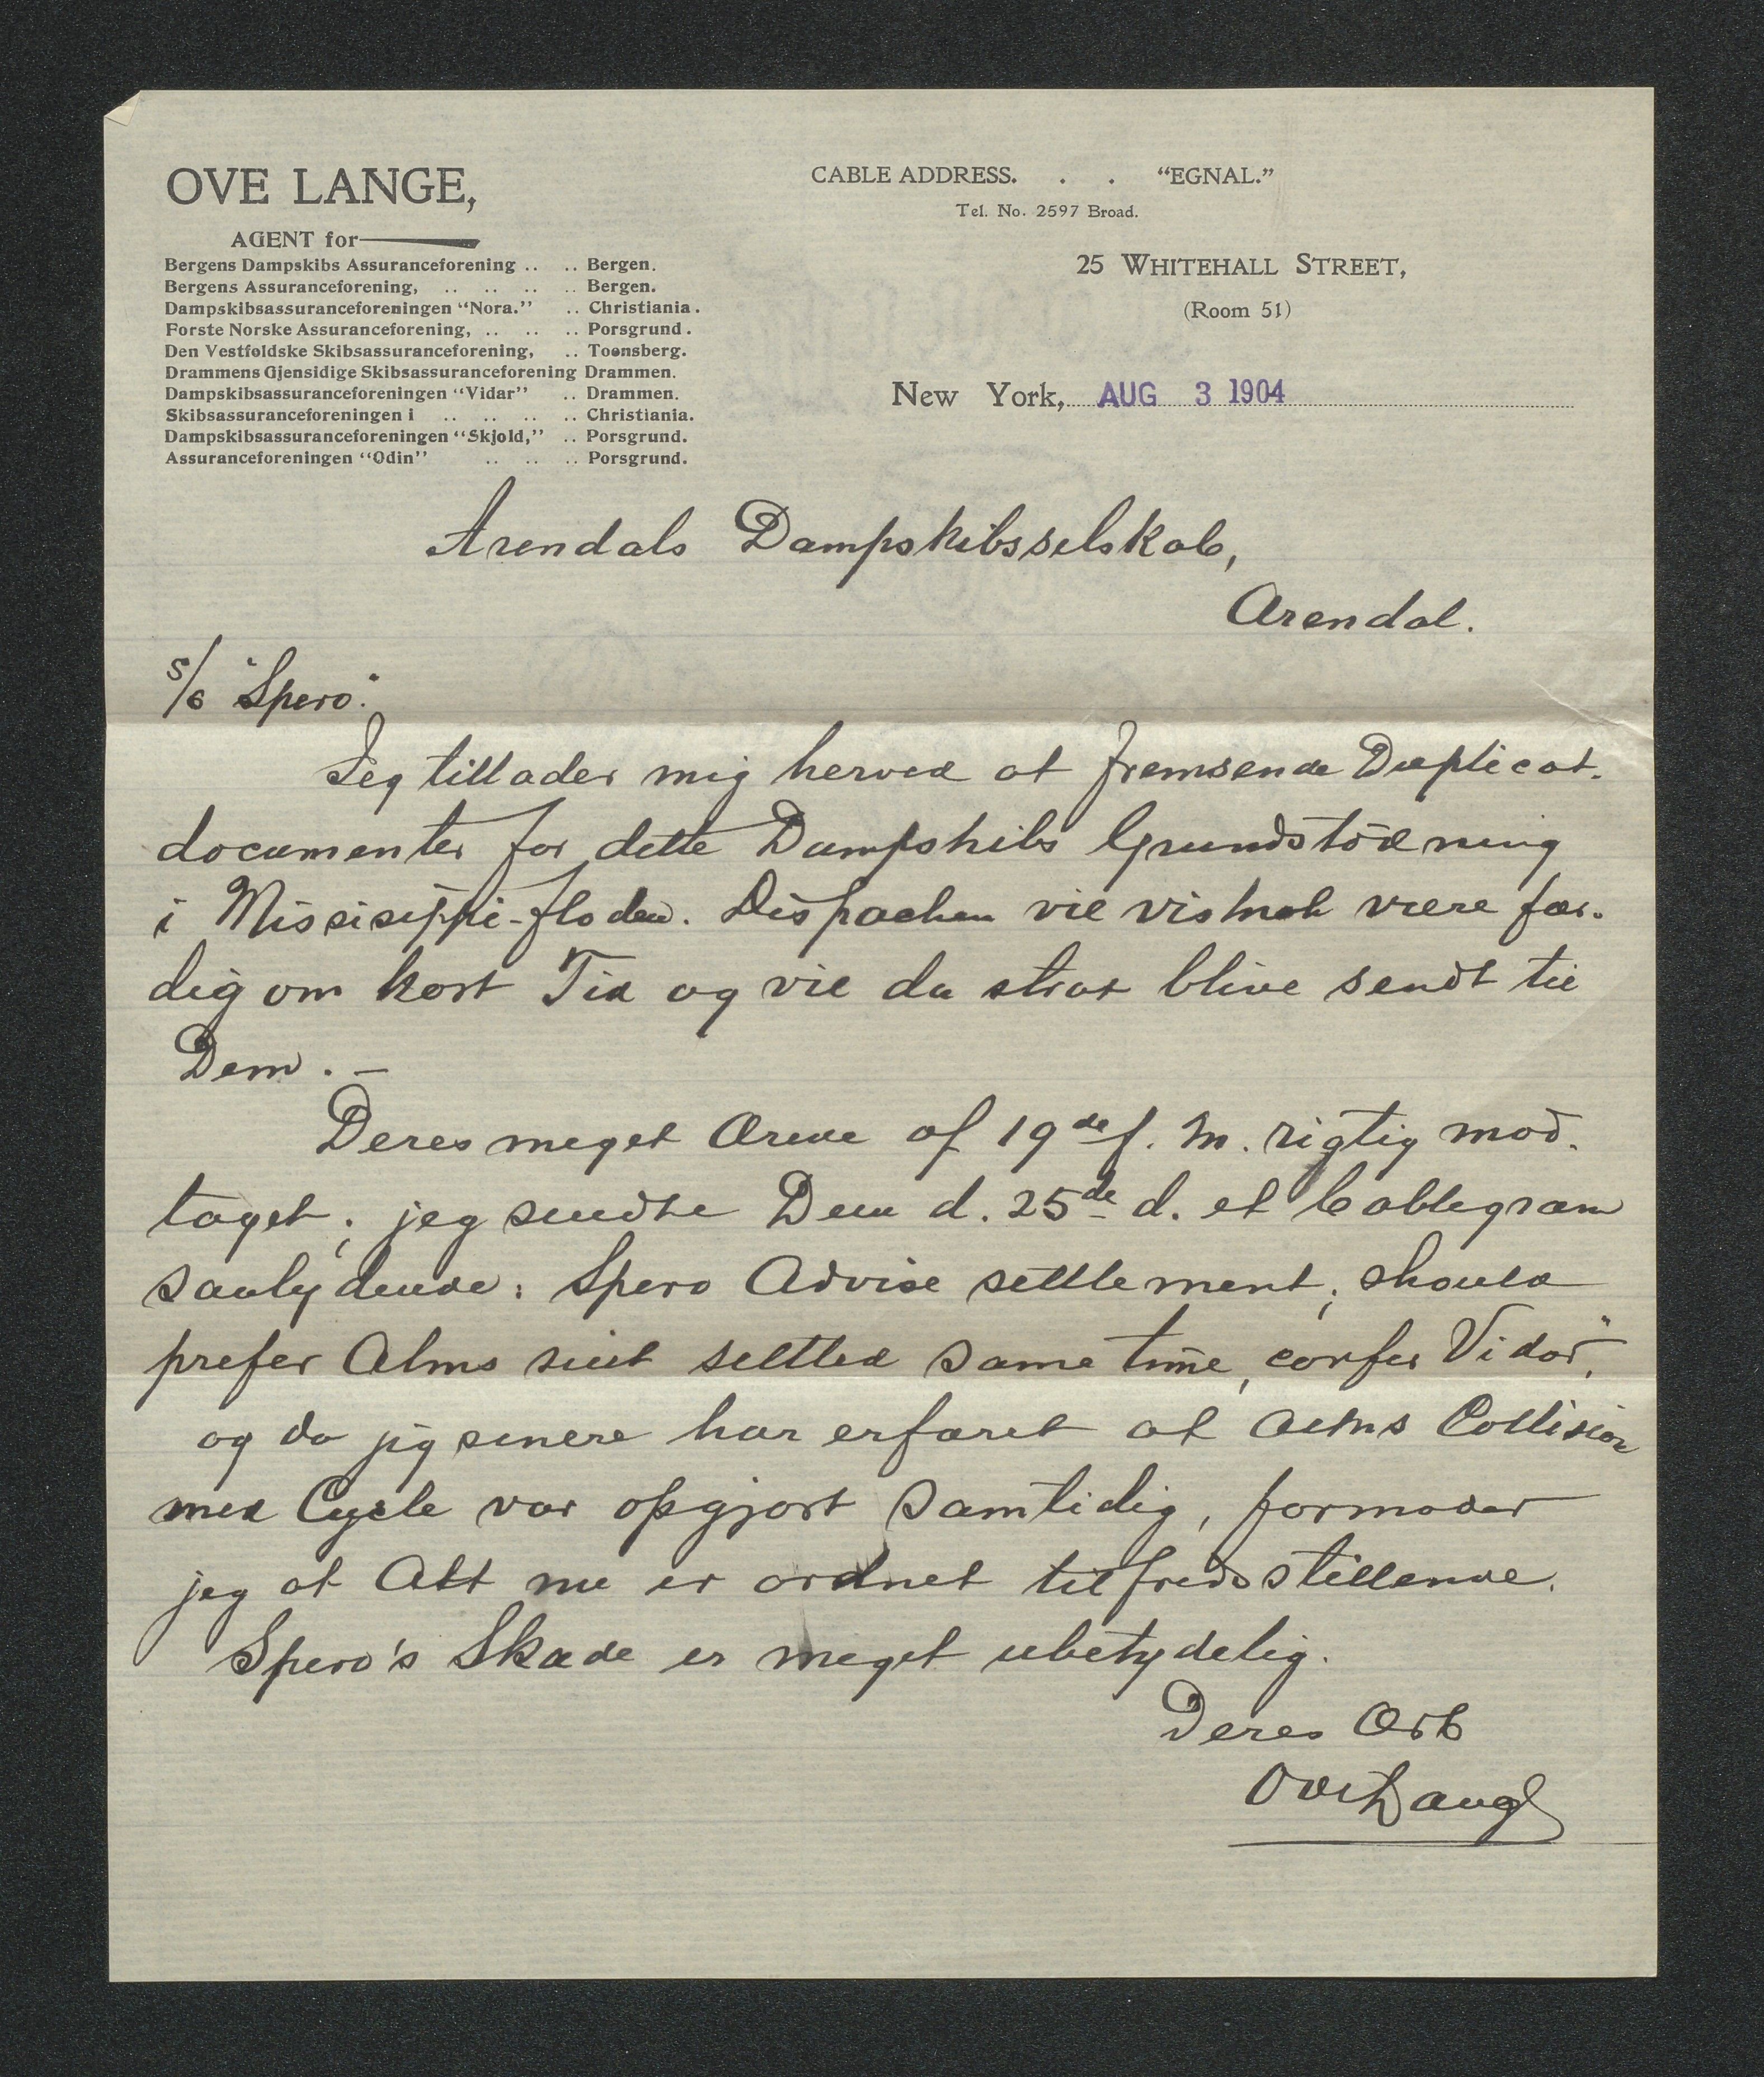 OVE LANGE,
AGENT for
Bergens Dampskibs Assuranceforening .. .. Bergen.
Bergens Assuranceforening, .. .. .. .. Bergen.
Dampskibsassuranceforeningen “Nora.” .. Christiania.
Forste Norske Assuranceforening, .. .. .. Porsgrund.
Den Vestfoldske Skibsassuranceforening, .. Toensberg.
Drammens Gjensidige Skibsassuranceforening Drammen.
Dampskibsassuranceforeningen “Vidar” .. Drammen.
Skibsassuranceforeningen i .. .. .. .. Christiania.
Dampskibsassuranceforeningen “Skjold,” .. Porsgrund.
Assuranceforeningen “Odin” .. .. .. Porsgrund.
CABLE ADDRESS. . . “EGNAL.”
Tel. No. 2597 Broad.
25 WHITEHALL STREET,
(Room 51)
New York, AUG 3 1904
Arendals Dampskibsselskab,
Arendal.
S/S "Spero".
Jeg tillader mig herved at fremsende Duplicat-
documenter for dette Dampskibs Grundstödning
i Missisippi-floden. Dispachen vil vistnok være fær-
dig om kort Tid og vil da strax blive sendt til
Dem. -
Deres meget Ærede af 19de f. M. rigtig mod-
taget; jeg sendte Dem d. 25de d. et Cablegram
saalydende: Spero Advise settlement; should
prefer Alms suit settled same time, confer Vidar",
og da jeg senere har erfaret at Alms Collision
med Cycle var opgjort samtidig, formoder
jeg at Alt nu er ordnet tilfredsstillende.
Spero's Skade er meget ubetydelig.
Deres Ærb
Ove Lange